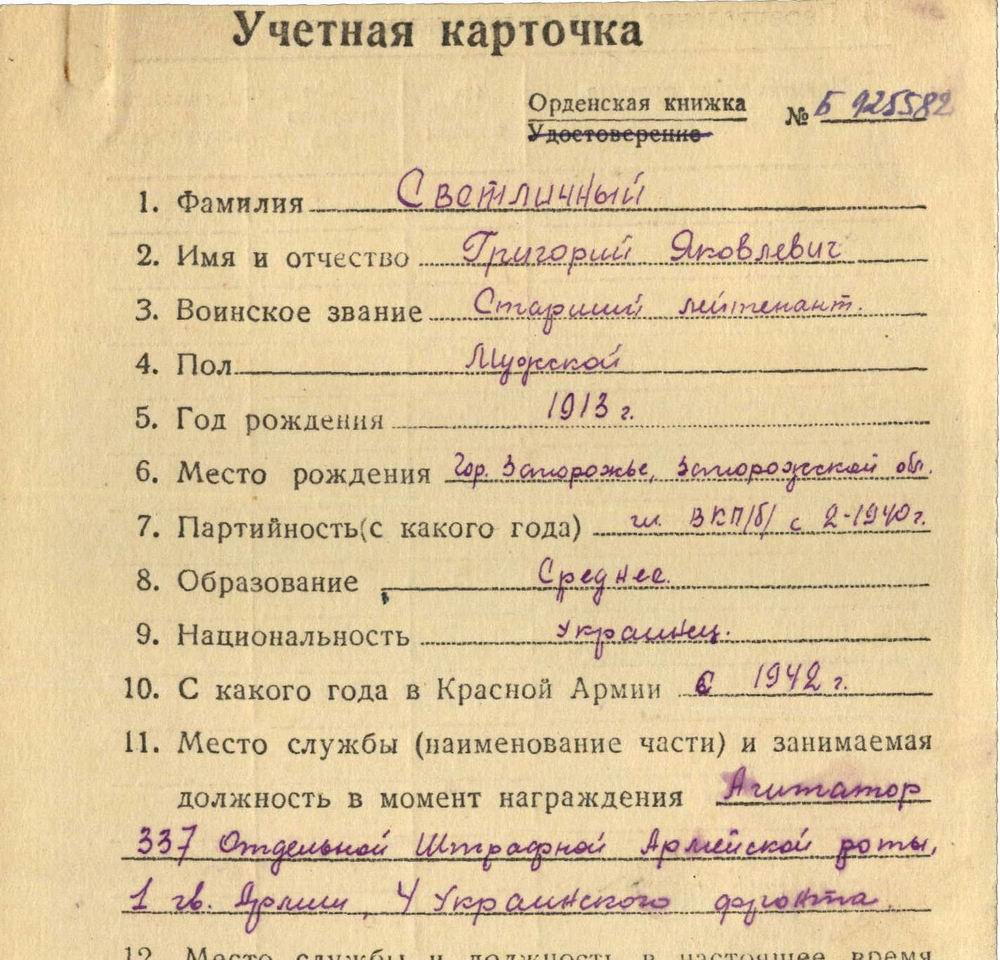 Учетная карточка
Орденская книжка № Б 925582
Удостоверение
1. Фамилия Светличный
2. Имя и отчество Григорий Яковлевич
3. Воинское звание Старший лейтенант.
4. Пол Мужской
5. Год рождения 1913 г.
6. Место рождения Гор. Запорожье, Запорожской обл.
7. Партийность (с какого года) чл. ВКП/б/ с 2-1940 г.
8. Образование Среднее.
9. Национальность Украинец.
10. С какого года в Красной Армии с 1942 г.
11. Место службы (наименование части) и занимаемая
должность в момент награждения Агитатор
337 Отдельной Штрафной Армейской роты,
1 гв. Армии, 4 Украинского фронта.
12. Место службы и должность в настоящее время